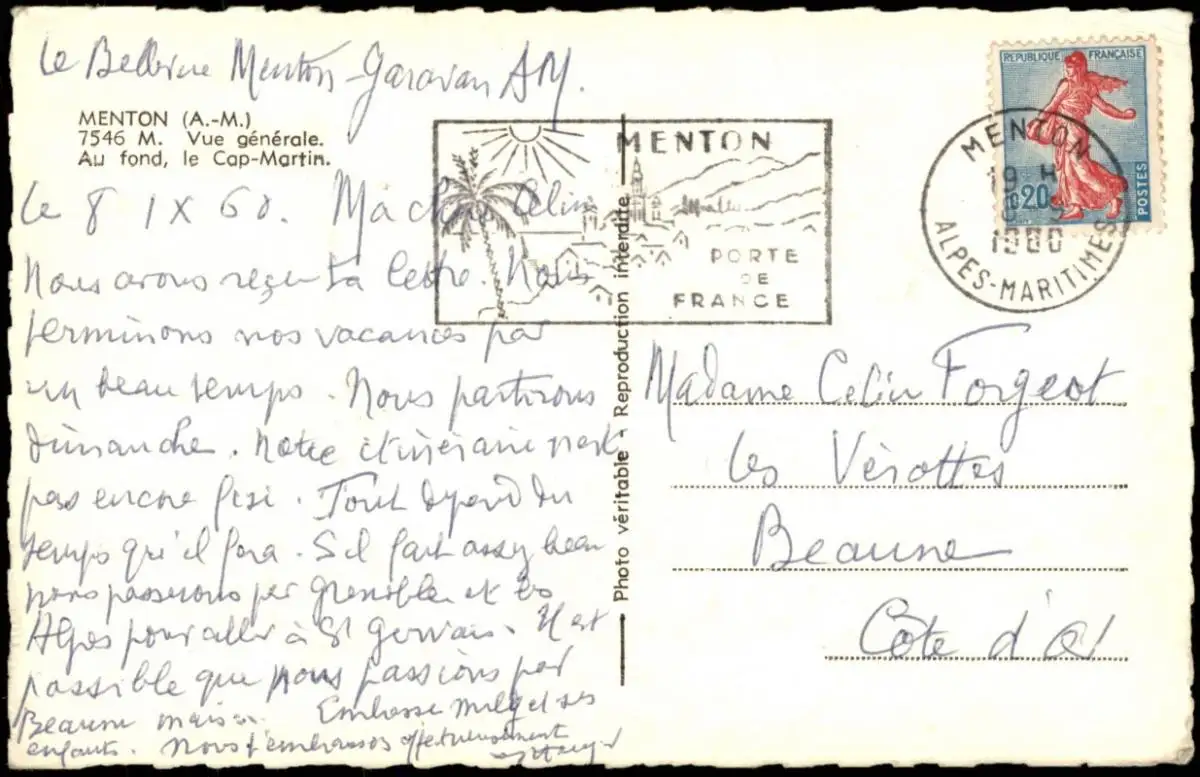 Le Bellevue Menton-Garavan AM.
MENTON (A.-M.)
7546 M. Vue générale.
Au fond, le Cap-Martin.
Le 8 IX 60. Ma chère Célin
Nous avons reçu ta lettre. Nous
terminons nos vacances par
un beau temps. Nous partirons
dimanche. Notre itinéraire n'est
pas encore fixé. Tout dépend du
temps qu'il fera. S'il fait assez beau
nous passerons par Grenoble et les
Alpes pour aller à St Gervais. Il est
possible que nous passions par
Beaune
Embrasse et ses
enfants. Nous t'embrassons affectueusement
MENTON
PORTE
DE
FRANCE
Photo véritable - Reproduction interdite
REPUBLIQUE FRANÇAISE
0,20
POSTES
MENTON
19 H
ALPES-MARITIMES
Madame Celin Forgeot
les Vérottes
Beaune
Côte d'Or